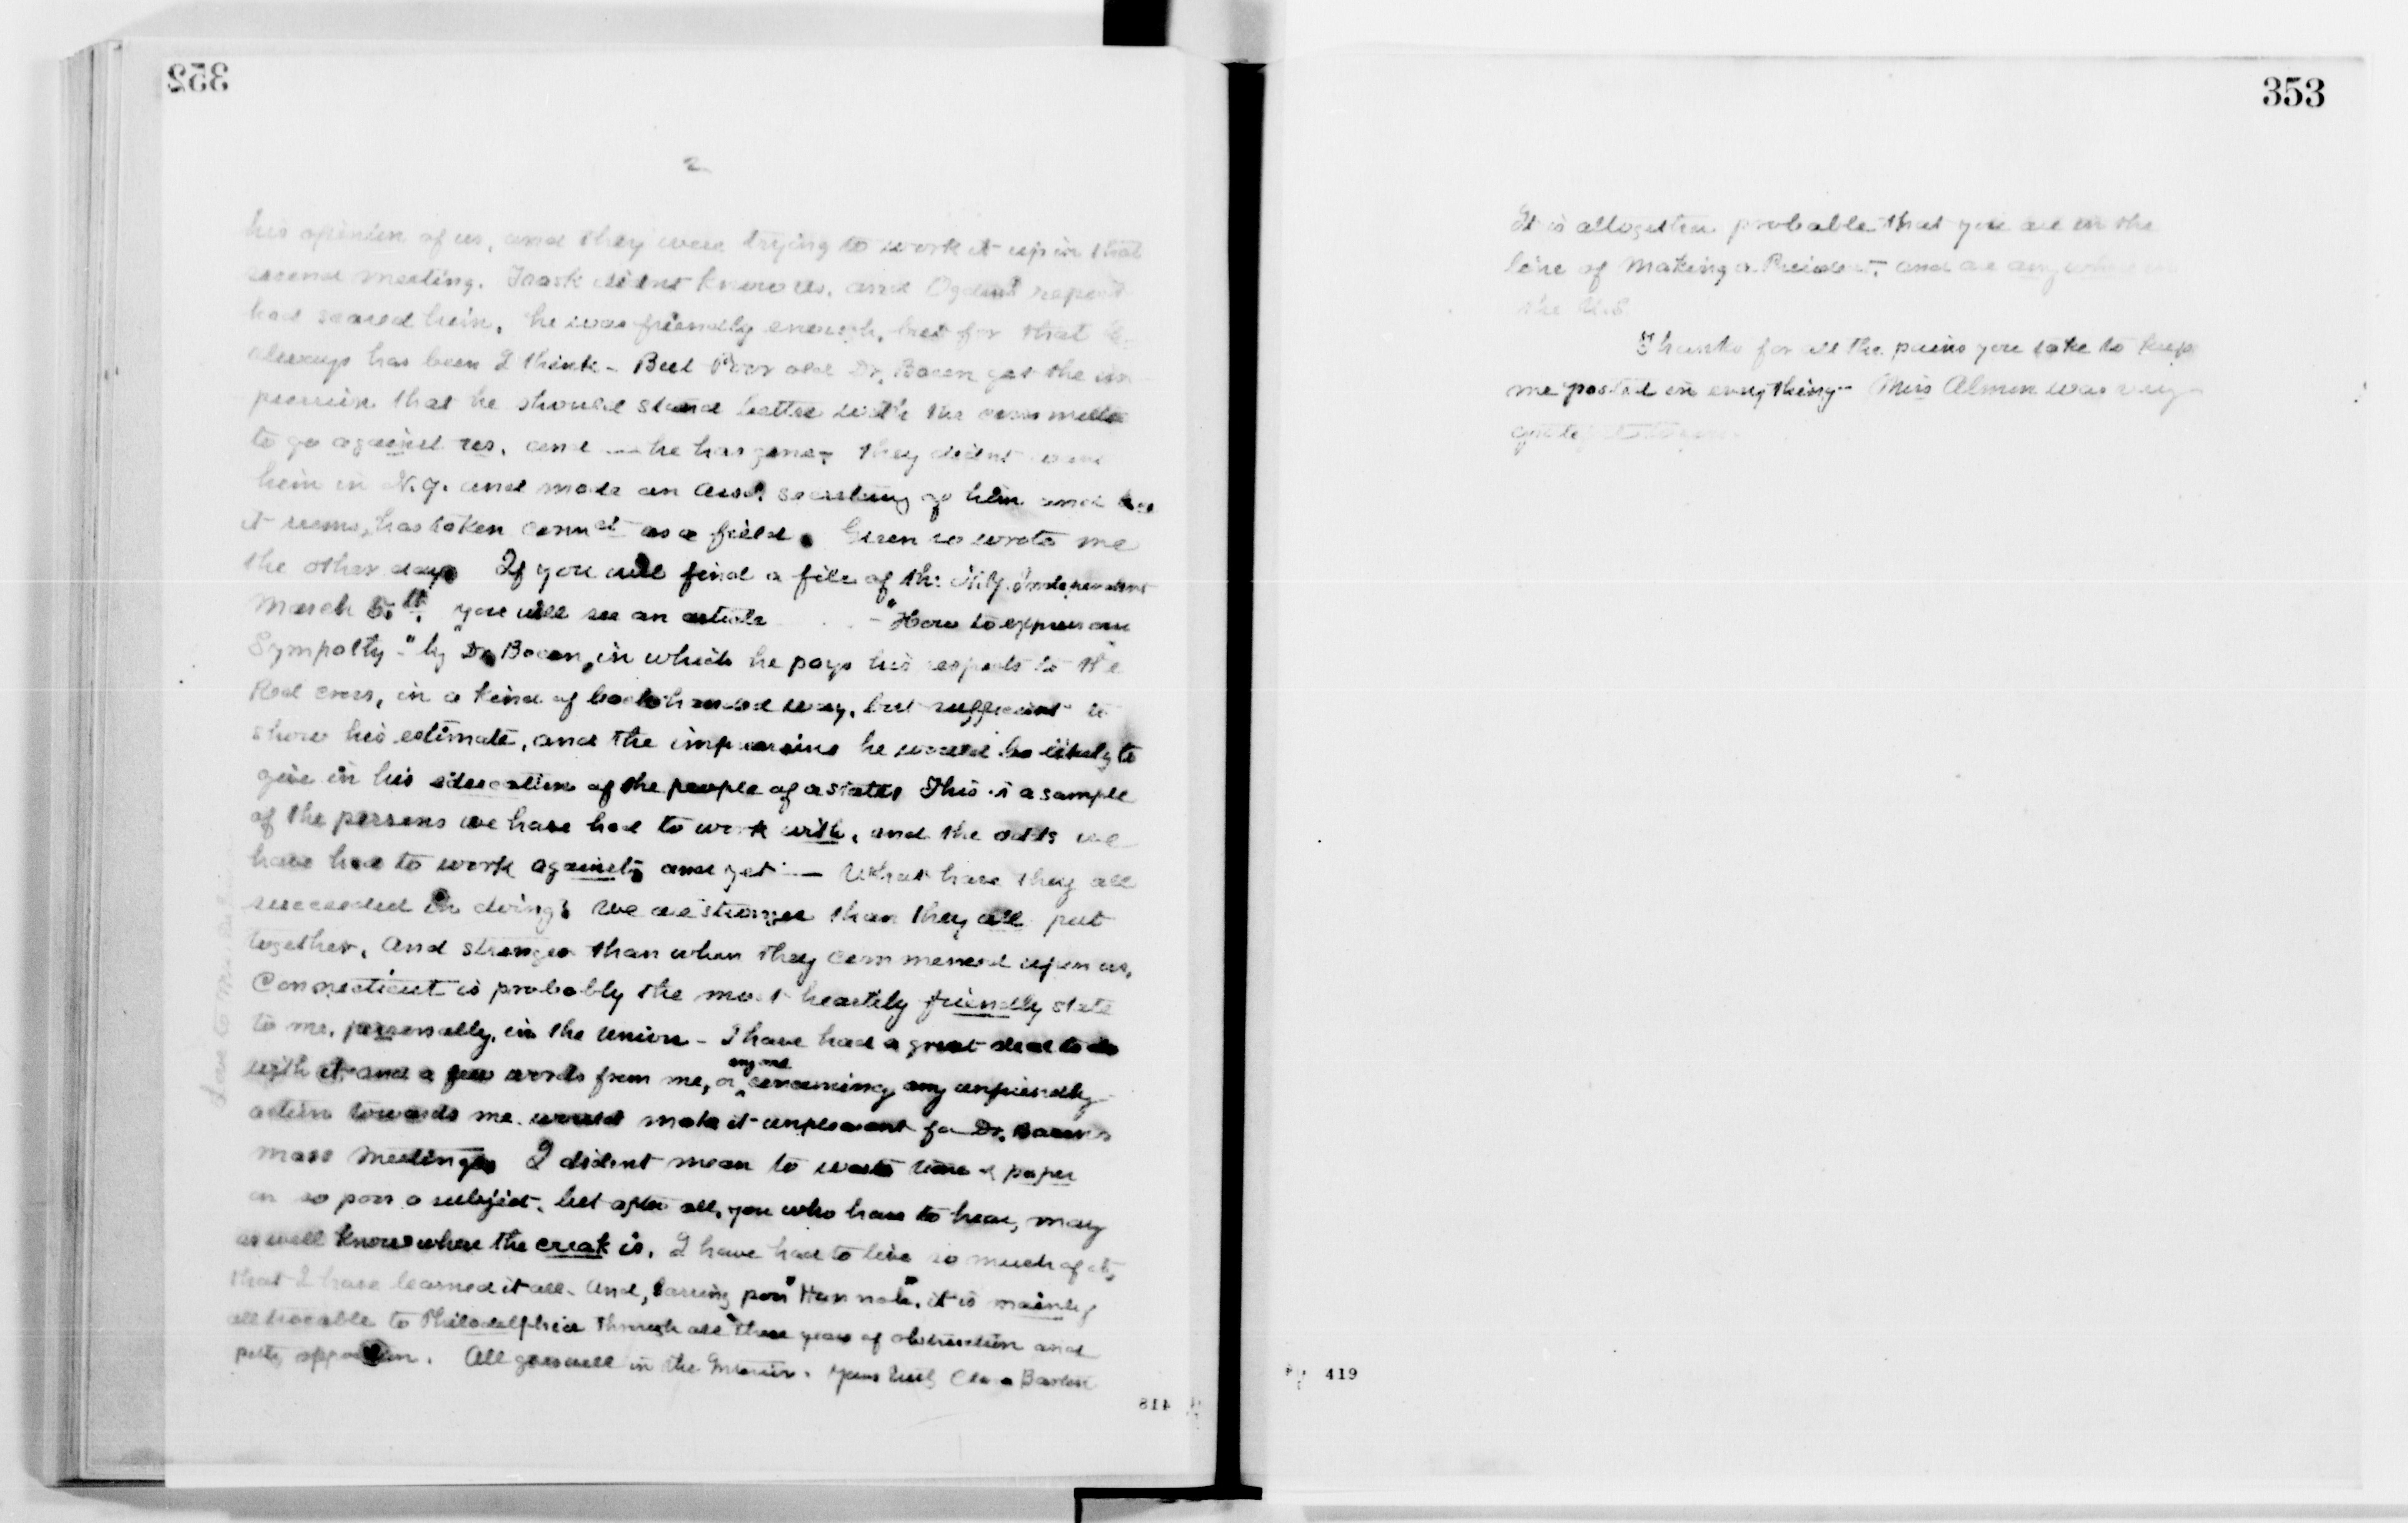 352
2
his opinion of us, and they were trying to work it up in that
second meeting. Trask didnt know us, and Ogdens report
had scared him, he was friendly enough, but for that he
always has been I think - But Poor old Dr. Bacon got the im-
pression that he should stand better with the committee
to go against us, and — he has gone - they didnt want
him in N.Y. and made an Asst. secretary of him and he
it seems, has taken Connct as a field. so wrote me
the other day. If you will find a file of the N.Y. Independent
March 5.th, you will see an article - "How to express our
Sympathy -" by Dr. Bacon, in which he pays his respects to the
Red cross, in a kind of backhanded way, but sufficient to
show his estimate, and the impressions he would be likely to
give in his education of the people of a state. This is a sample
of the persons we have had to work with, and the odds we
have had to work against, and yet — What have they all
succeeded in doing? We are stronger than they all put
together, And stronger than when they commenced upon us,
Connecticut is probably the most heartily friendly state
to me, personally, in the union - I have had a great deal to do
any one
with it and a few words from me, or concerning any unfriendly
action towards me would make it unpleasant for Dr. Bacons
mass meetings I dident mean to waste time & paper
on so poor a subject, but after all, you who have to hear, may
as well know where the creak is. I have had to live so much of it,
that I have learned it all. And, barring poor "Hannah", it is mainly
all traceable to Philadelphia through all these years of obstruction and
petty opposition. All goes well in the Interior. Yours truly Clara Barton
Love to
418
353
It is altogether probable that you are in the
line of Making a President, and are any where in
the U.S.
Thanks for all the pains you take to keep
me posted in everything - Miss Almon was very
419